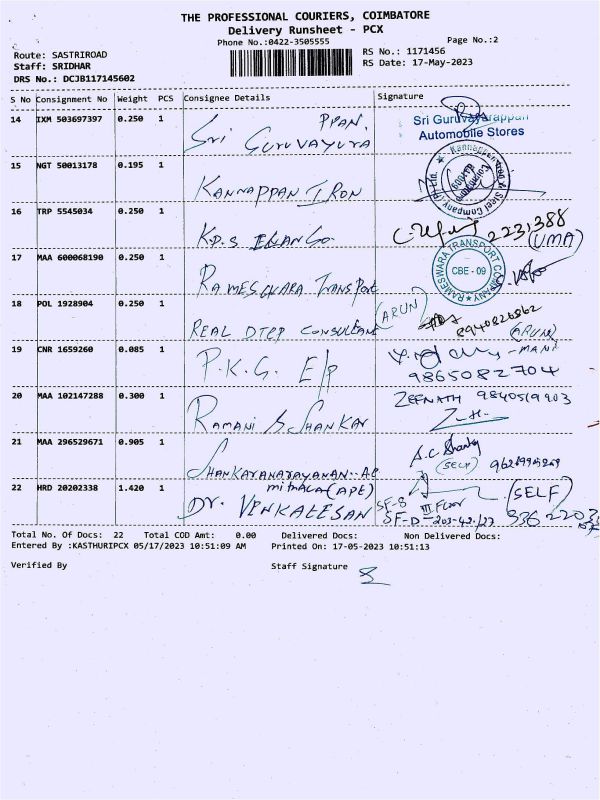 THE PROFESSIONAL COURIERS, COIMBATORE
Delivery Runsheet - PCX
Phone No.:0422-3505555
Page No.:2
Route: SASTRIROAD
RS No.: 1171456
Staff: SRIDHAR
RS Date: 17-May-2023
DRS No.: DCJB117145602
S No Consignment No Weight PCS Consignee Details Signature
14 IXM 503697397 0.250 1 Sri GURUVAYURA PPAN. Sri Guruvayurappan
Automobile Stores
15 NGT 50013178 0.195 1 KANNAPPAN IRON
Kannappan Iron & Steel Company (P) Ltd.
16 TRP 5545034 0.250 1 K.P.S 2231388
(UMA)
17 MAA 600068190 0.250 1 RAMESWARA TRANSPORT
RAMESWARA TRANSPORT COMPANY
CBE - 09
18 POL 1928904 0.250 1 REAL DTCP CONSULTANT (ARUN)
8940826862
(ARUN)
19 CNR 1659260 0.085 1 P.K.G. E/P - MANI
9865082704
20 MAA 102147288 0.300 1 RAMANI S SHANKAR ZEENATH 9840519903
21 MAA 296529671 0.905 1 SHANKARANARAYANAN (SELF)
22 HRD 20202338 1.420 1 DR. VENKATESAN (SELF)
SF-S III Floor
SF-D
Total No. Of Docs: 22 Total COD Amt: 0.00 Delivered Docs: Non Delivered Docs:
Entered By :KASTHURIPCX 05/17/2023 10:51:09 AM Printed On: 17-05-2023 10:51:13
Verified By Staff Signature